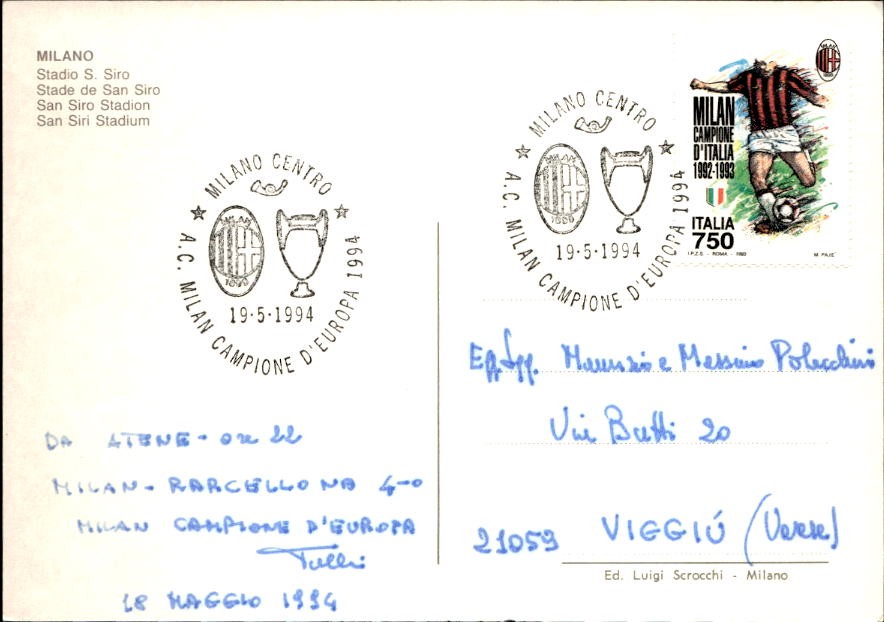 MILANO
Stadio S. Siro
Stade de San Siro
San Siro Stadion
San Siri Stadium
MILANO CENTRO
1899
19·5·1994
A.C. MILAN CAMPIONE D'EUROPA 1994
MILANO CENTRO
1899
19·5·1994
A.C. MILAN CAMPIONE D'EUROPA 1994
MILAN
CAMPIONE
D'ITALIA
1992-1993
ITALIA
750
I.P.Z.S. - ROMA - 1993
DA ATENE - ore 22
MILAN - BARCELLONA 4-0
MILAN CAMPIONE D'EUROPA
18 MAGGIO 1994
Maurizio e Massimo
Via Butti 20
21059 VIGGIÚ (Varese)
Ed. Luigi Scrocchi - Milano